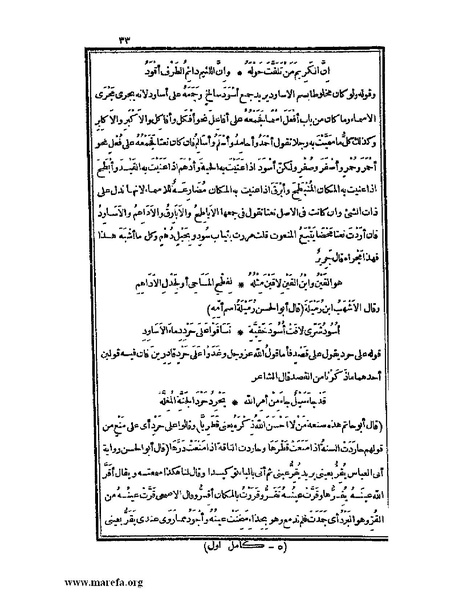 ٣٣
إنّ الكريم من تلفّت حوله * وإنّ اللئيم دائم الطرف أقود
وقوله ولو كان مخاوطا بسم الاساود يريد جمع أسود سالخ وجمعه على أساود لانه يجرى مجرى
الاسماء وما كان من باب أفعل اسما فجمعه على أفاعل نحو أفكل وأفاكل والاكبر والاكابر
وكذلك كل ما سميت به رجلا تقول أحمد وأحامد وأسلم وأسالم فان كان نعتا فجمعه على فعل نحو
أحمر وحمر وأصفر وصفر ولكن أسود اذا عنيت به الحية وأدهم اذا عنيت به القيد وأبطح
اذا عنيت به المكان المنبطح وأبرق اذا عنيت به المكان مضارعة للاسماء لانها تدل على
ذات الشئ وان كانت فى الاصل نعتا تقول فى جمعها الاباطح والابارق والاداهم والاساود
فان أردت نعتا محضا يتبع المنعوت قلت مررت بثياب سود وبخيل دهم وكل ما أشبه هذا
فهذا مجراه قال جرير
هو القين وابن القين لا قين مثله * لفطح المساحى أو لجدل الاداهم
وقال الاشهب ابن رميلة (قال أبو الحسن رميلة اسم أمه)
أسود شرى لاقت أسود خفية * تساقوا على حرد دماء الاساود
قوله على حرد يقول على قصد فأما قول الله عز وجل وغدوا على حرد قادرين فان فيه قولين
أحدهما ماذكرنا من القصد قال الشاعر
قد جاء سيل جاء من أمر الله * يحرد حرد الجنة المغله
(قال أبو حاتم هذه صنعة من لا أحسن الله ذكره يعنى قطربا) وقالوا على حرد أى على منع من
قولهم حاردت السنة اذا منعت قطرها وحاردت الناقة اذا منعت درها (قال أبو الحسن رواية
أبى العباس يقر بعينى يريد يقر عينى ثم أتى بالباء توكيدا وقال لنا هكذا سمعته ويقال أقر
الله عينه يقرها وقرت عينه تقر وقررت بالمكان أقر وقال الاصمعى قرت عينه من
القر وهو البرد أى جمدت فلم تدمع وهو بحذاء سخنت عينه وأجود مما روى عندى يقر بعينى
(٥ - كامل اول)
www.marefa.org